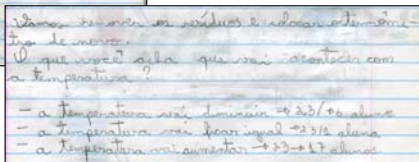 Vamos remover os resíduos e colocar o termôme
tro de novo.
O que você acha que vai acontecer com
a temperatura?
- a temperatura vai diminuir → 23/→6 aluno
- a temperatura vai ficar igual → 23/1 aluna
- a temperatura vai aumentar → 23 → 17 alunos